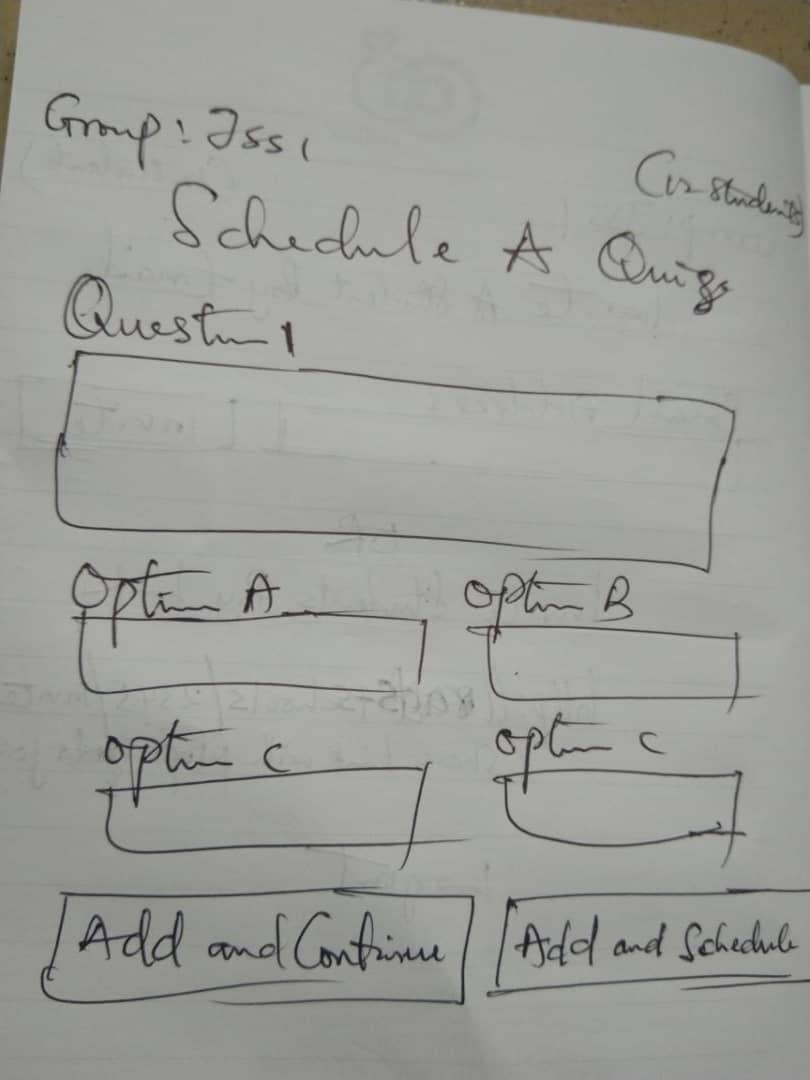 Group: Jss1
(12 students)
Schedule A Quiz
Question 1
Option A Option B
Option C Option C
Add and Continue Add and Schedule